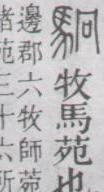 駉牧馬苑也
邊郡六牧師菀
諸苑三十六所